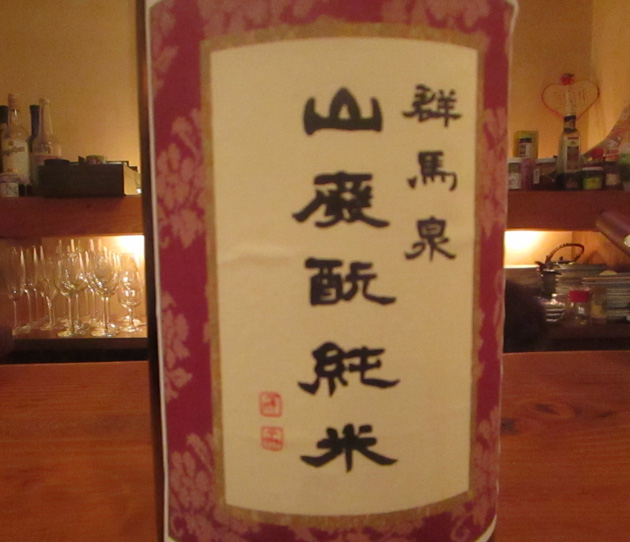 群馬泉
山廃酛純米